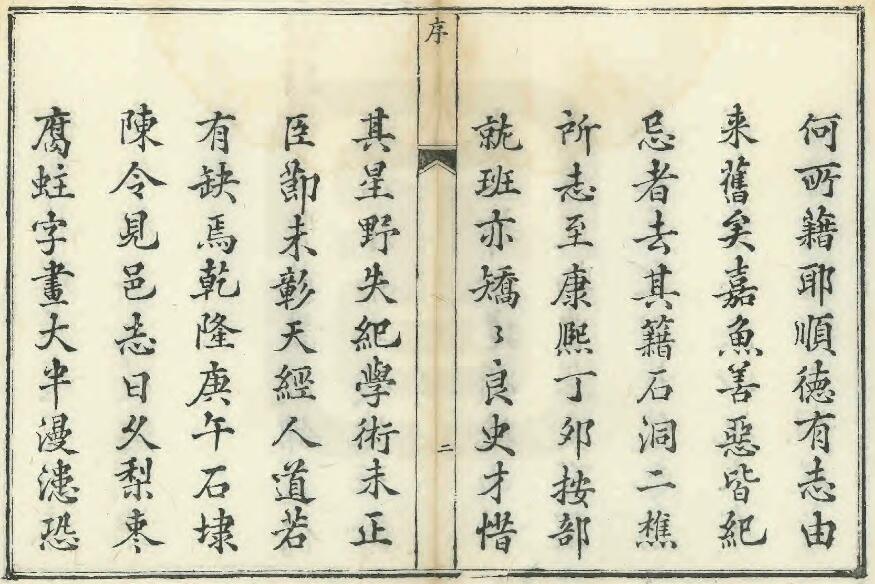 何所籍耶順徳有志由
来舊矣嘉魚善惡皆紀
忌者去其籍石洞二樵
所志至康熙丁卯按部
就班亦矯〻良史才惜
序
二
其星野失紀學術未正
臣節未彰天經人道若
有缺焉乾隆庚午石埭
陳令見邑志日久梨枣
腐蛀字畫大半漫漶恐